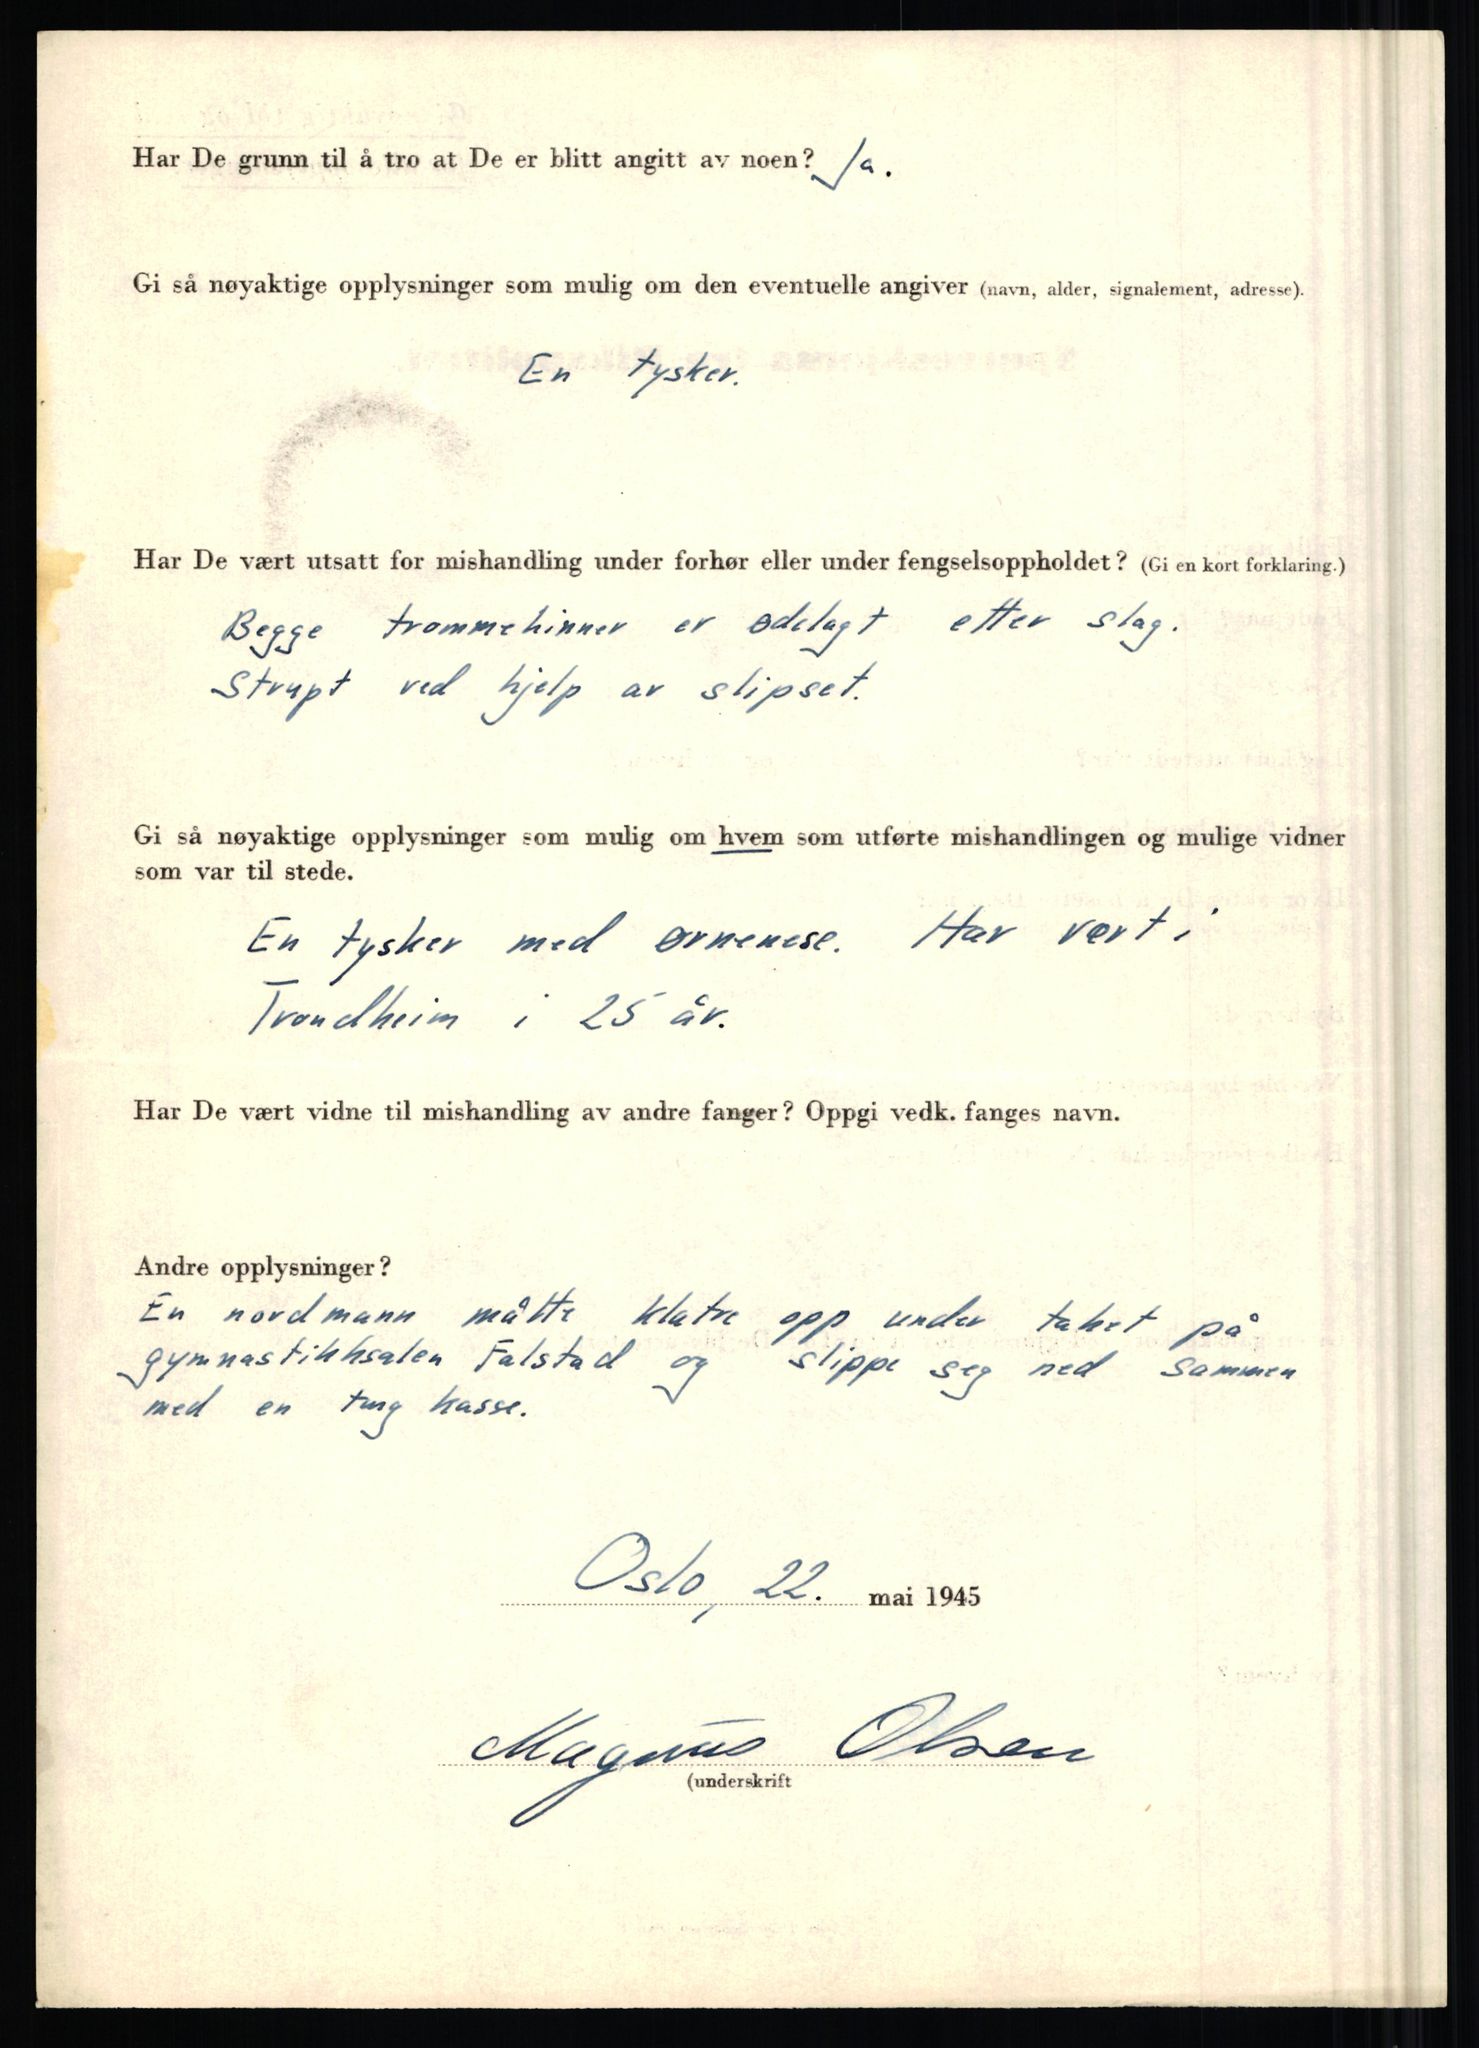 Har De grunn til å tro at De er blitt angitt av noen? Ja.
Gi så nøyaktige opplysninger som mulig om den eventuelle angiver (navn, alder, signalement, adresse).
En tysker.
Har De vært utsatt for mishandling under forhør eller under fengselsoppholdet? (Gi en kort forklaring.)
Begge trommehinner er ødelagt etter slag.
Strupt ved hjelp av slipset.
Gi så nøyaktige opplysninger som mulig om hvem som utførte mishandlingen og mulige vidner
som var til stede.
En tysker med ørnenese. Har vært i
Trondheim i 25 år.
Har De vært vidne til mishandling av andre fanger? Oppgi vedk. fanges navn.
Andre opplysninger?
En nordmann måtte klatre opp under taket på
gymnastikksalen Falstad og slippe seg ned sammen
med en tung kasse.
Oslo, 22. mai 1945
Magnus Olsen
(underskrift